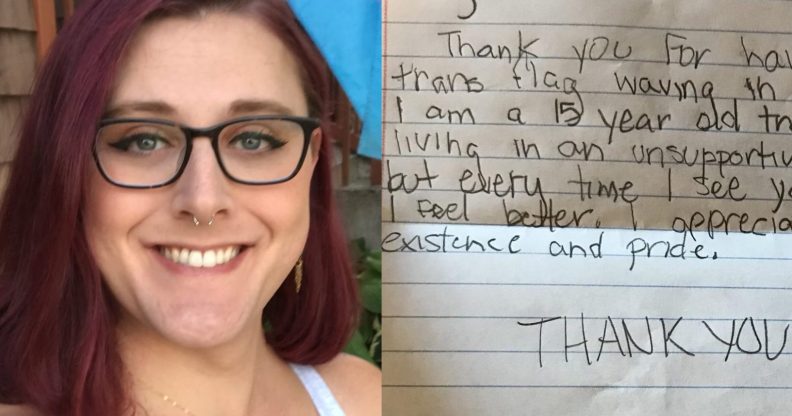 Thank you For hav
trans flag waving in
I am a 15 year old tr
living in an unsupportiv
but every time I see yo
I Feel better. I appreciat
existence and pride.
THANK YOU